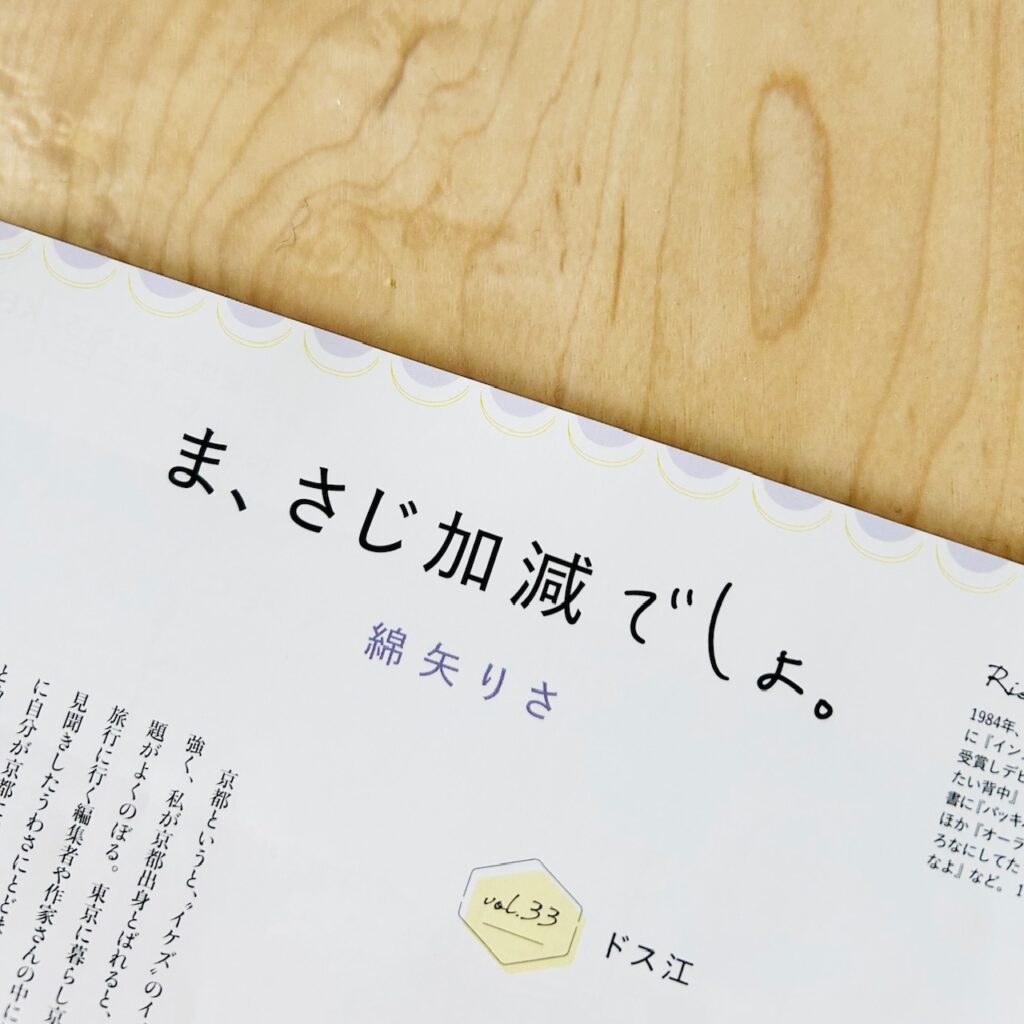 ま、さじ加減でしょ。
綿矢りさ
vol.33
ドス江
京都というと、〝イケズ〟のイ
強く、私が京都出身とばれると、
題がよくのぼる。東京に暮らし京
旅行に行く編集者や作家さんの中に
見聞きしたうわさにとどま
に自分が京都に
1984年、
に『イン
受賞しデビ
たい背中』
書に『パッキ
ほか『オーラ
ろなにしてた
なよ』など。1